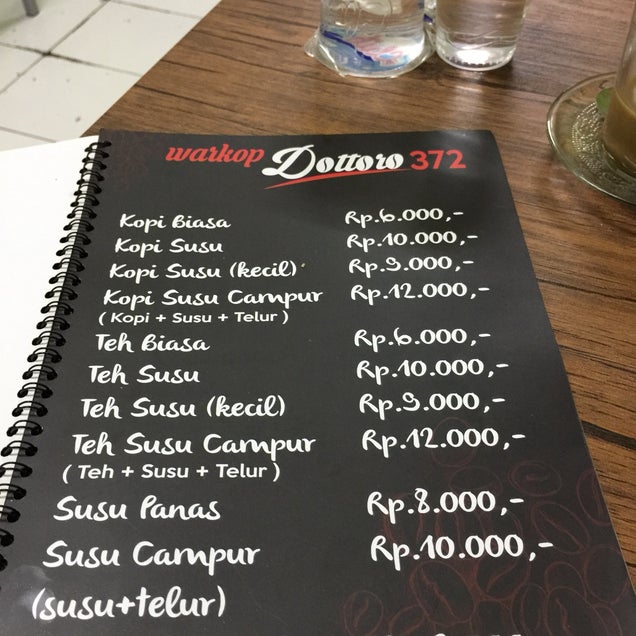 warkop Dottoro 372
Kopi Biasa Rp.6.000,-
Kopi Susu Rp.10.000,-
Kopi Susu (kecil) Rp.9.000,-
Kopi Susu Campur Rp.12.000,-
( Kopi + Susu + Telur )
Teh Biasa Rp.6.000,-
Teh Susu Rp.10.000,-
Teh Susu (kecil) Rp.9.000,-
Teh Susu Campur Rp.12.000,-
( Teh + Susu + Telur )
Susu Panas Rp.8.000,-
Susu Campur Rp.10.000,-
(susu+telur)